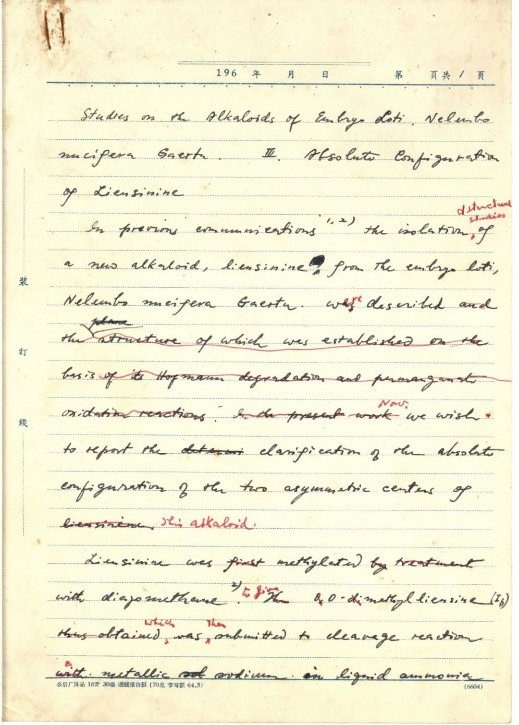 196 年 月 日 第 页共 1 页
Studies on the Alkaloids of Embryo Loti, Nelumbo
nucifera Gaertn. III. Absolute Configuration
of Liensinine
structural
studies
In previous communications 1, 2) the isolation, of
a new alkaloid, liensinine, from the embryo loti,
Nelumbo nucifera Gaertn. were described and
plane
the structure of which was established on the
basis of its Hofmann degradation and permanganate
oxidation reactions. In the present work Now, we wish
to report the determi clarification of the absolute
configuration of the two asymmetric centers of
liensinine. this alkaloid.
Liensinine was first methylated by treatment
with diazomethane 2) to give The O,O-dimethyl liensine (Ib)
thus obtained, which was then submitted to cleavage reaction
with metallic sod sodium in liquid ammonia
装
订
线
(6604)